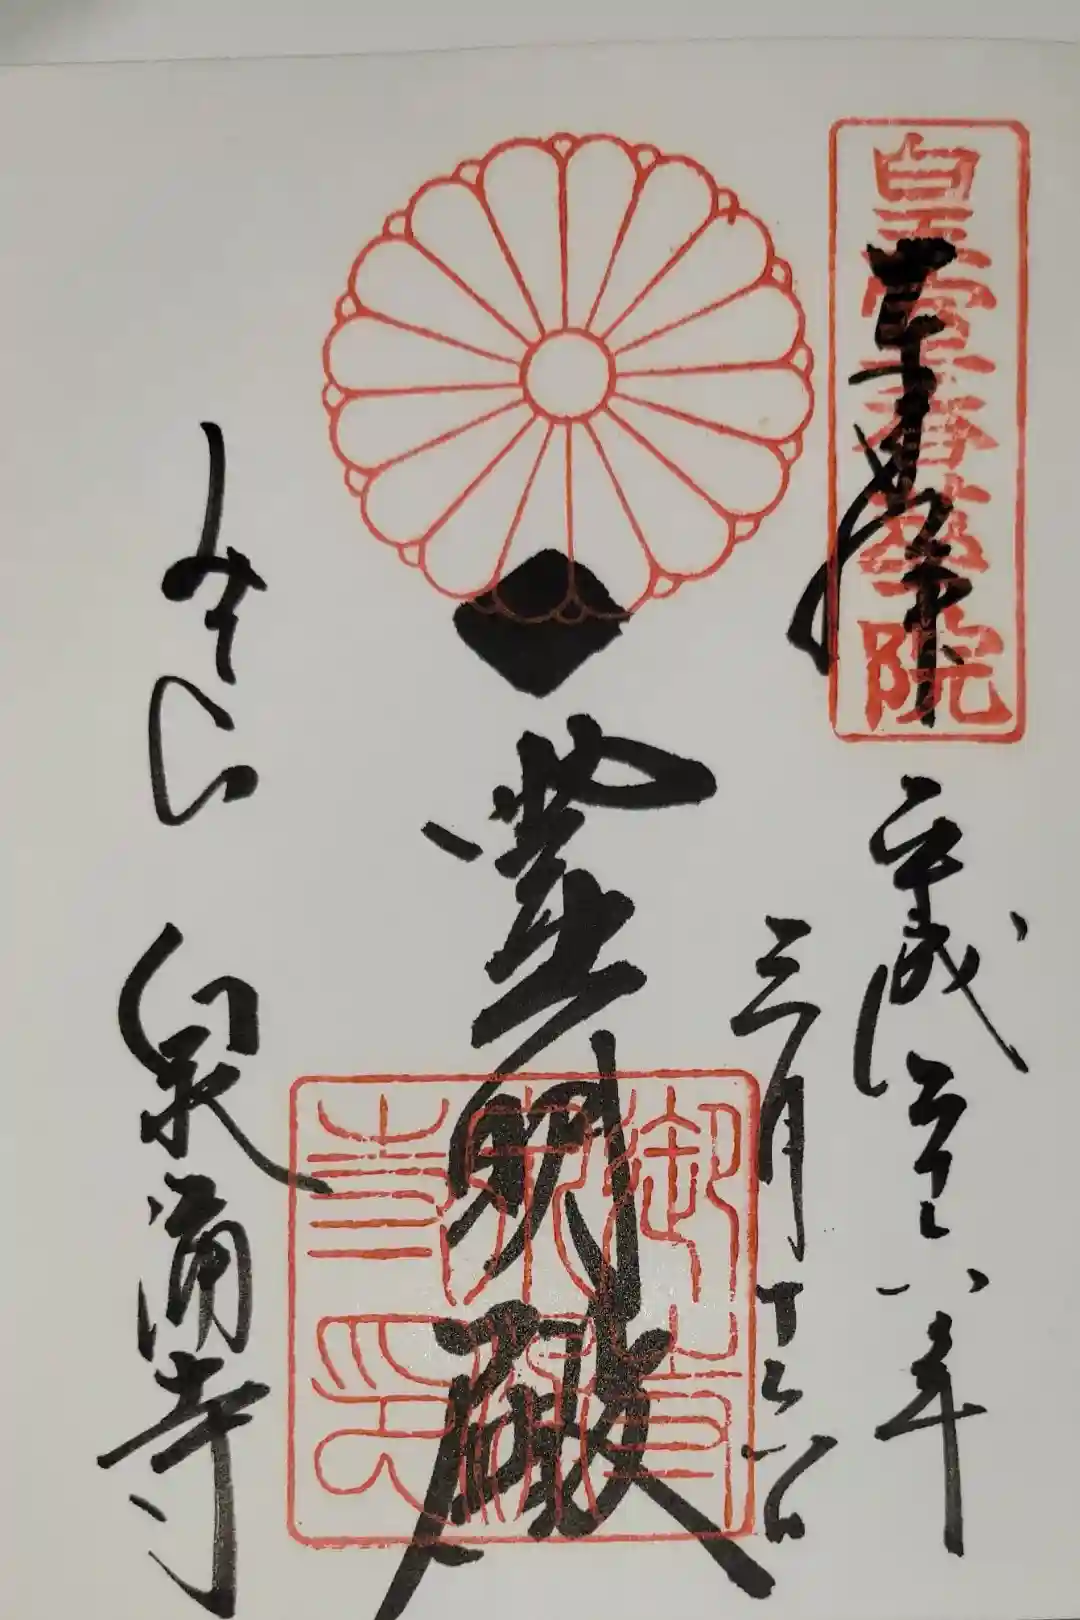 皇室香華院
奉拝
平成 八年
三月 六日
霊明殿
御寺泉涌寺印
みてら 泉涌寺